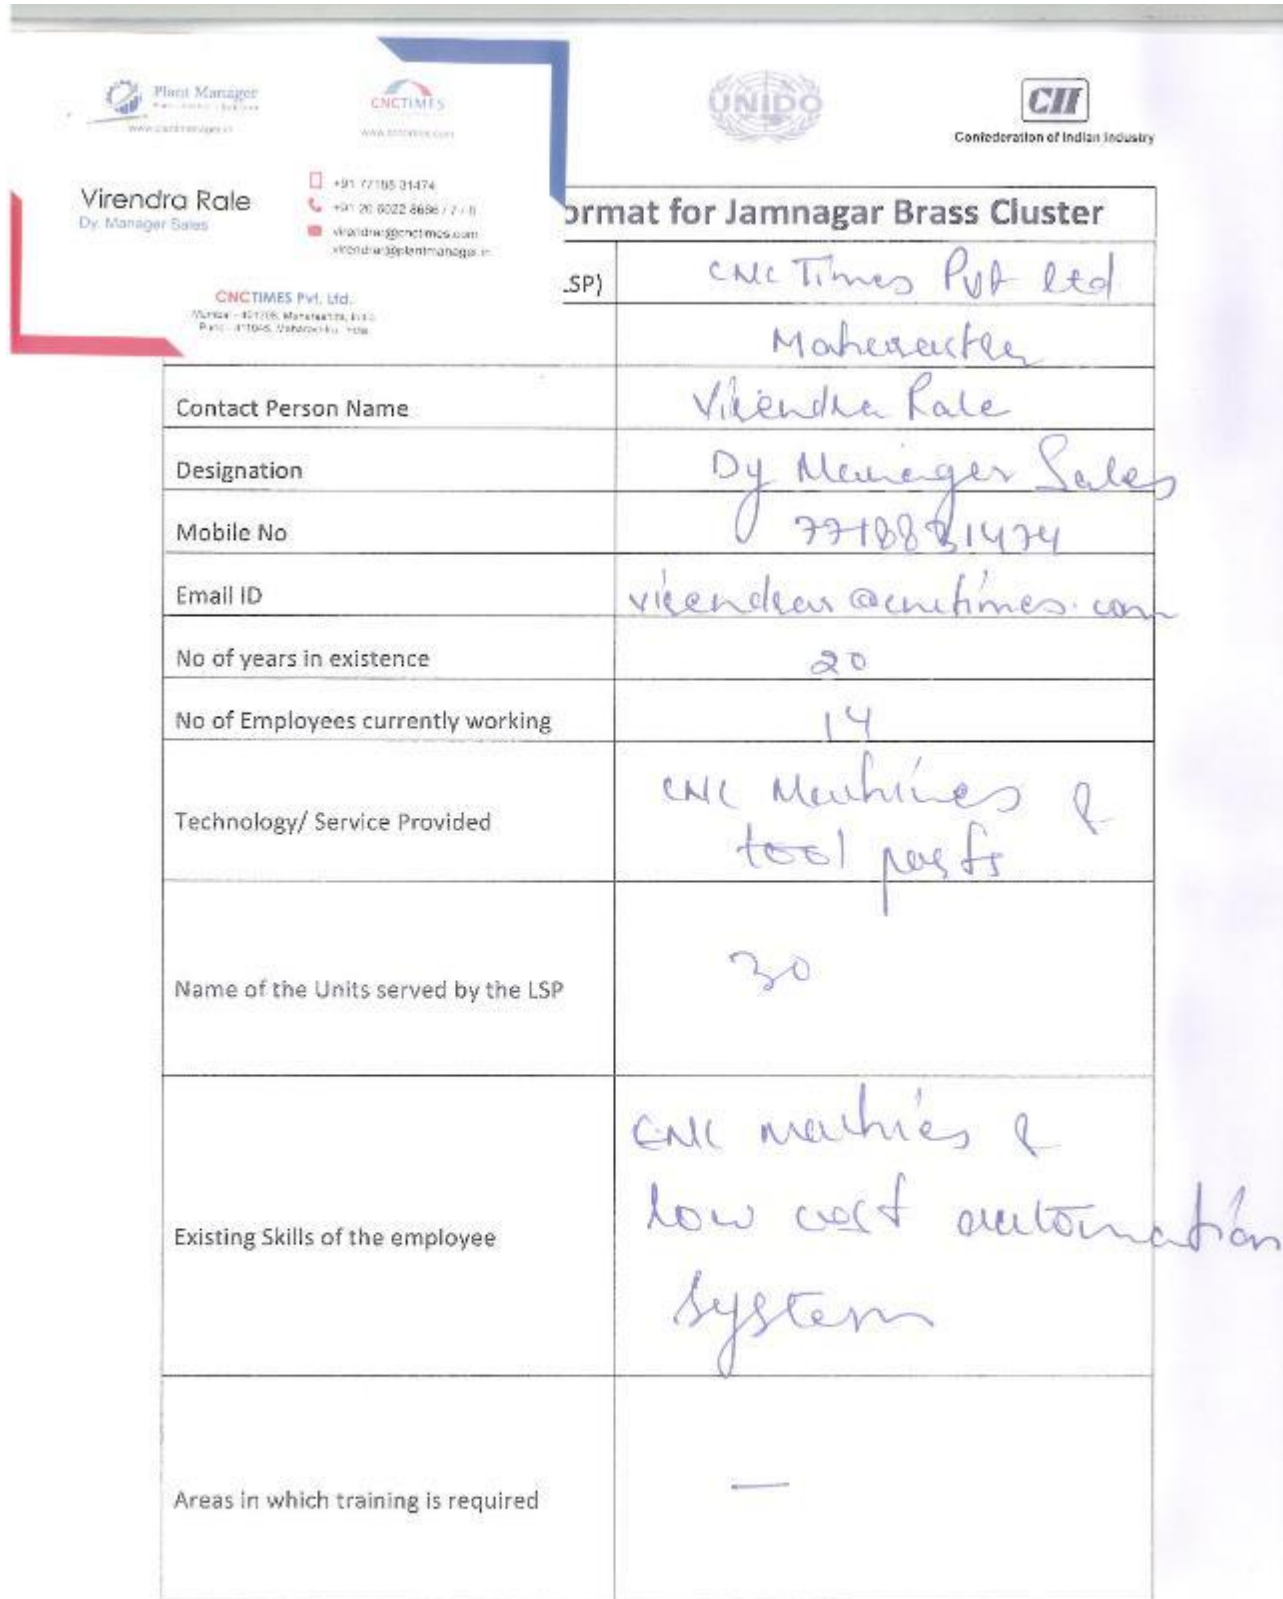 Plant Manager
www.plantmanager.in
CNCTIMES
www.cnctimes.com
UNIDO
CII
Confederation of Indian Industry
Virendra Rale
Dy. Manager Sales
+91 77188 31474
virendrar@cnctimes.com
virendrar@plantmanager.in
CNCTIMES Pvt. Ltd.
ormat for Jamnagar Brass Cluster
LSP) CNC Times Pvt ltd
Contact Person Name Virendra Rale
Designation Dy Manager Sales
Mobile No
Email ID virendrar@cnctimes.com
No of years in existence 20
No of Employees currently working 14
Technology/ Service Provided CNC Machines &
tool
Name of the Units served by the LSP 30
Existing Skills of the employee CNC machies &
low cost automation
System
Areas in which training is required —